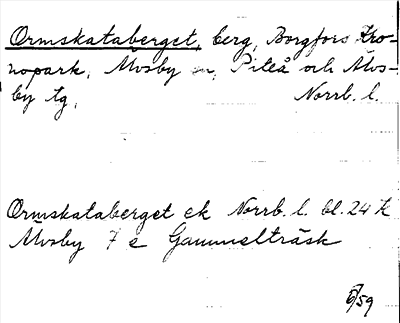 Ormskataberget, berg, Borgfors Kro-
nopark, Älvsby sn, Piteå och Älvs-
by tg, Norrb. l.
Ormskataberget ek Norrb. l. bl. 24 K
Älvsby 7 e Gammelträsk
/59